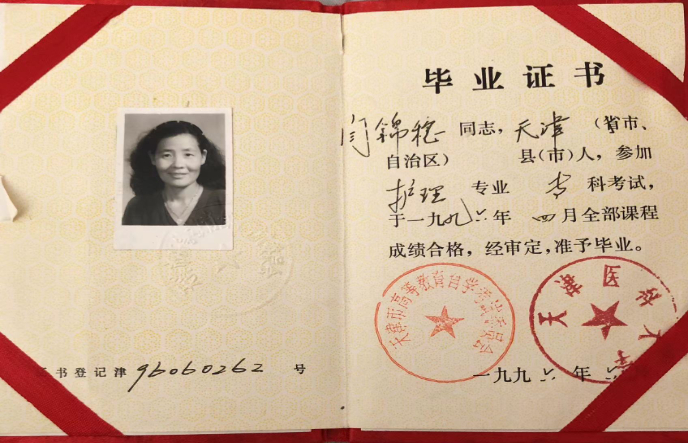 书登记津 96060262 号
毕业证书
闫锦稳同志,天津(省市、
自治区) 县(市)人,参加
护理专业专科考试,
于一九九六年四月全部课程
成绩合格,经审定,准予毕业。
天津市高等教育自学考试委员会
天津医科大学
一九九六年六